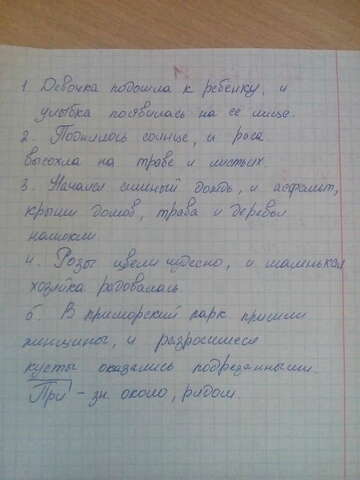 1. Девочка подошла к ребенку, и
улыбка появилась на ее лице.
2. Поднялось солнце, и роса
высохла на траве и листьях
3. Начался сильный дождь, и асфальт,
крыши домов, трава и деревья
намокли.
4. Розы цвели чудесно, и маленькая
хозяйка радовалась
5. В приморский парк пришли
женщины, и разросшиеся
кусты оказались подрезанными.
При - зн. около, рядом.